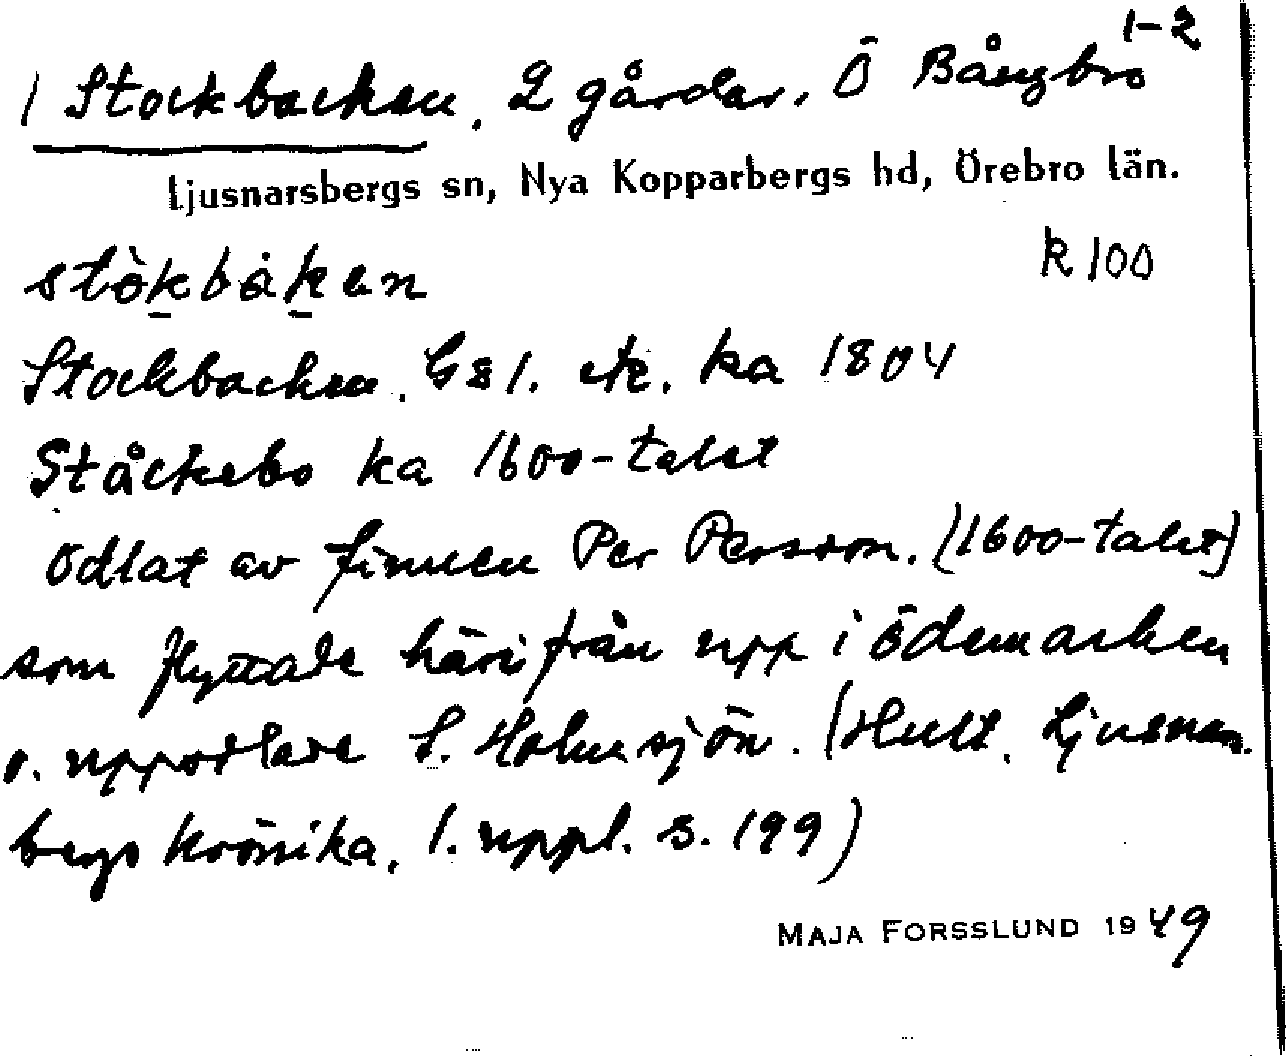 1-2
1 Stockbacken. 2 gårdar. Ö Bångbro
Ljusnarsbergs sn, Nya Kopparbergs hd, Örebro län.
stòkbàken k 100
Stockbacken. GS1. etc. ka 1804
Ståckebo ka 1600-talet
Odlat av finnen Per Persson. (1600-talet)
som flyttade härifrån upp i ödemarken
o. uppodlade S. Holmsjön. (Hult. Ljusnars-
bergs krönika, 1. uppl. s. 199)
MAJA FORSSLUND 1949